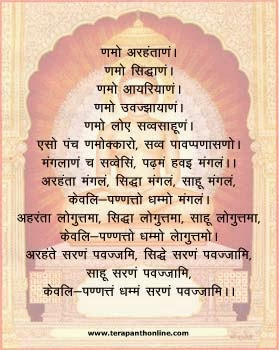 णमो अरहंताणं।
णमो सिद्धाणं।
णमो आयरियाणं।
णमो उवज्झायाणं।
णमो लोए सव्वसाहूणं।
एसो पंच णमोक्कारो, सव्व पावप्पणासणो।
मंगलाणं च सव्वेसिं, पढ़मं हवइ मंगलं।।
अरहंता मंगलं, सिद्धा मंगलं, साहू मंगलं,
केवलि-पण्णत्तो धम्मो मंगलं।
अहरंता लोगुत्तमा, सिद्धा लोगुत्तमा, साहू लोगुत्तमा,
केवलि-पण्णत्तो धम्मो लोगुत्तमो।
अरहंते सरणं पवज्जमि, सिद्धे सरणं पवज्जामि,
साहू सरणं पवज्जामि,
केवलि-पण्णत्तं धम्मं सरणं पवज्जामि।।
www.terapanthonline.com